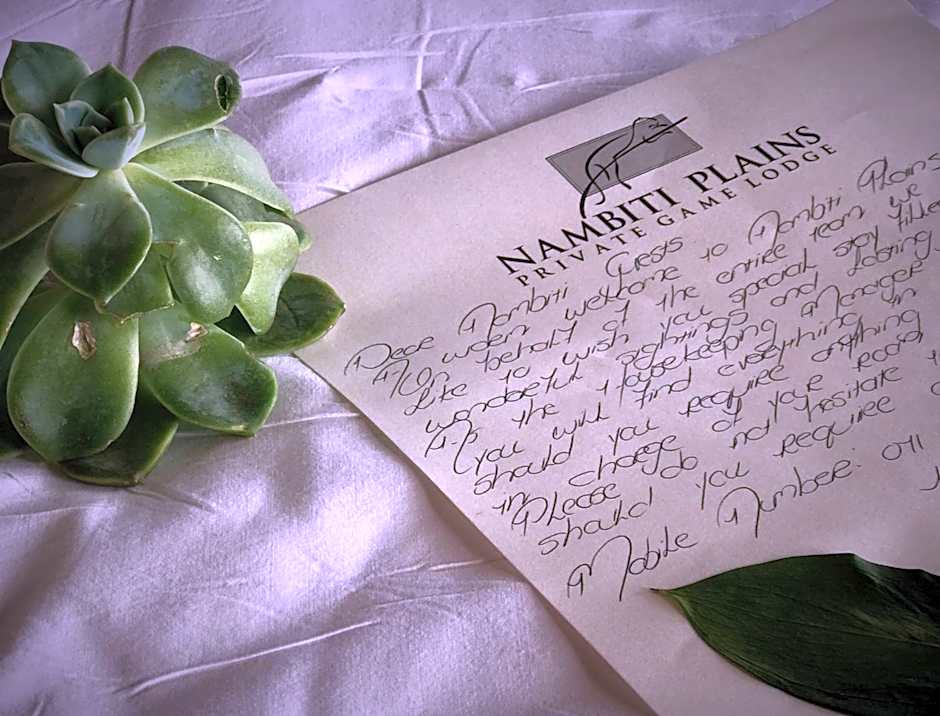 NAMBITI PLAINS
PRIVATE GAME LODGE
Dear Nambiti Guests
A warm welcome to Nambiti Plains
Like behalf of the entire team we
Like to wish you special stay filled
wonderful sightings and lasting
As the Housekeeping Manager
(you will find everything in
should you require anything
in charge of your room
Please do not hesitate t
should you require a
Mobile Number: 011